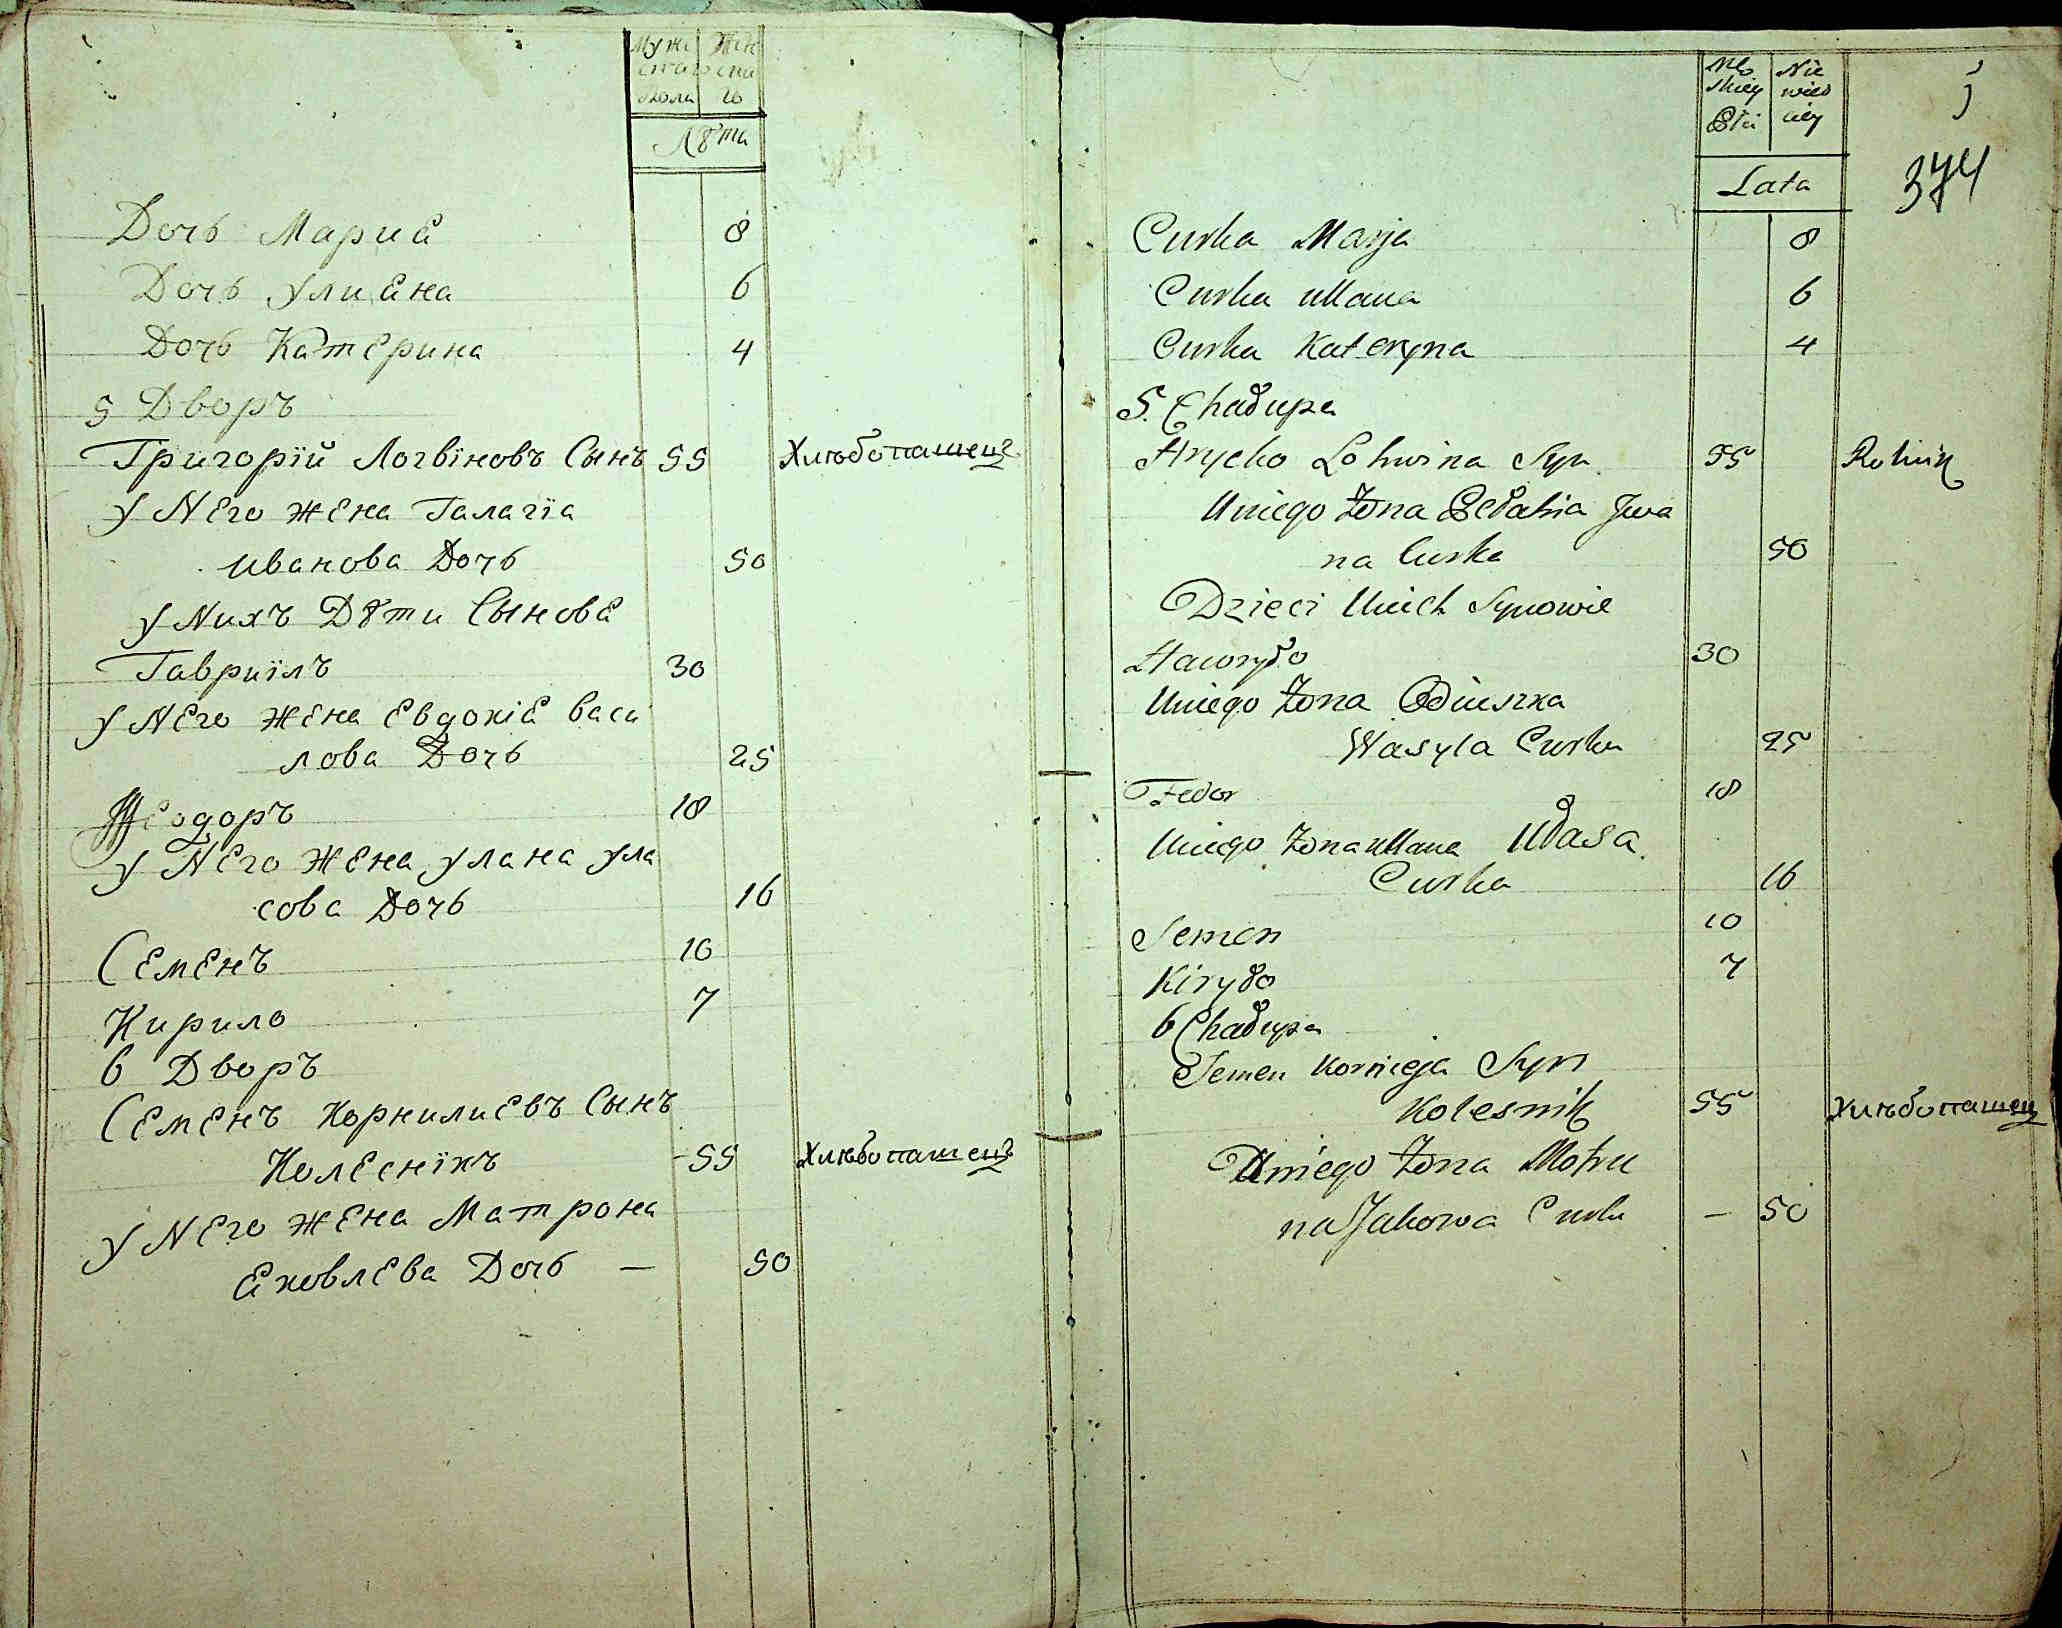 Муже Жен
скаго ска
Пола го
Лѣта
Дочь Мариа 8
Дочь Улиана 6
Дочь Катерина 4
5 Дворъ
Григорїй Логвїновъ Сынъ 55 Хлѣбопашецъ
У Него жена Галагїа
Иванова Дочь 50
У Нихъ Дѣти Сынове
Гавриїлъ 30
У Него жена Евдокіа Васи
лова Дочь 25
Феодоръ 18
У Него жена Улана Ула
сова Дочь 16
Семенъ 10
Кирило 7
6 Дворъ
Семенъ Корнилиевъ Сынъ
Колеснїкъ - 55 Хлѣбопашецъ
У Него жена Матрона
Яковлева Дочь — 50
Mę Nie
skiey wieś
Płci ciey
Lata
374
Curka Marja 8
Curka Ullana 6
Curka Kateryna 4
5. Chałupa
Hrycko Lohwina Syn 55 Rolnik
Uniego Żona Pełahia Jwa
na Curka 50
Dzieci Unich Synowie
Hawryło 30
Uniego Żona Odiuszka
Wasyla Curka 25
Fedor 18
Uniego Żona Ullana Ułasa
Curka 16
Semen 10
Kiryło 7
6 Chałupa
Semen Kornieja Syn
Kolesnik 55 Хлѣбопашец
Uniego Żona Motru
na Jakowa Curka — 50